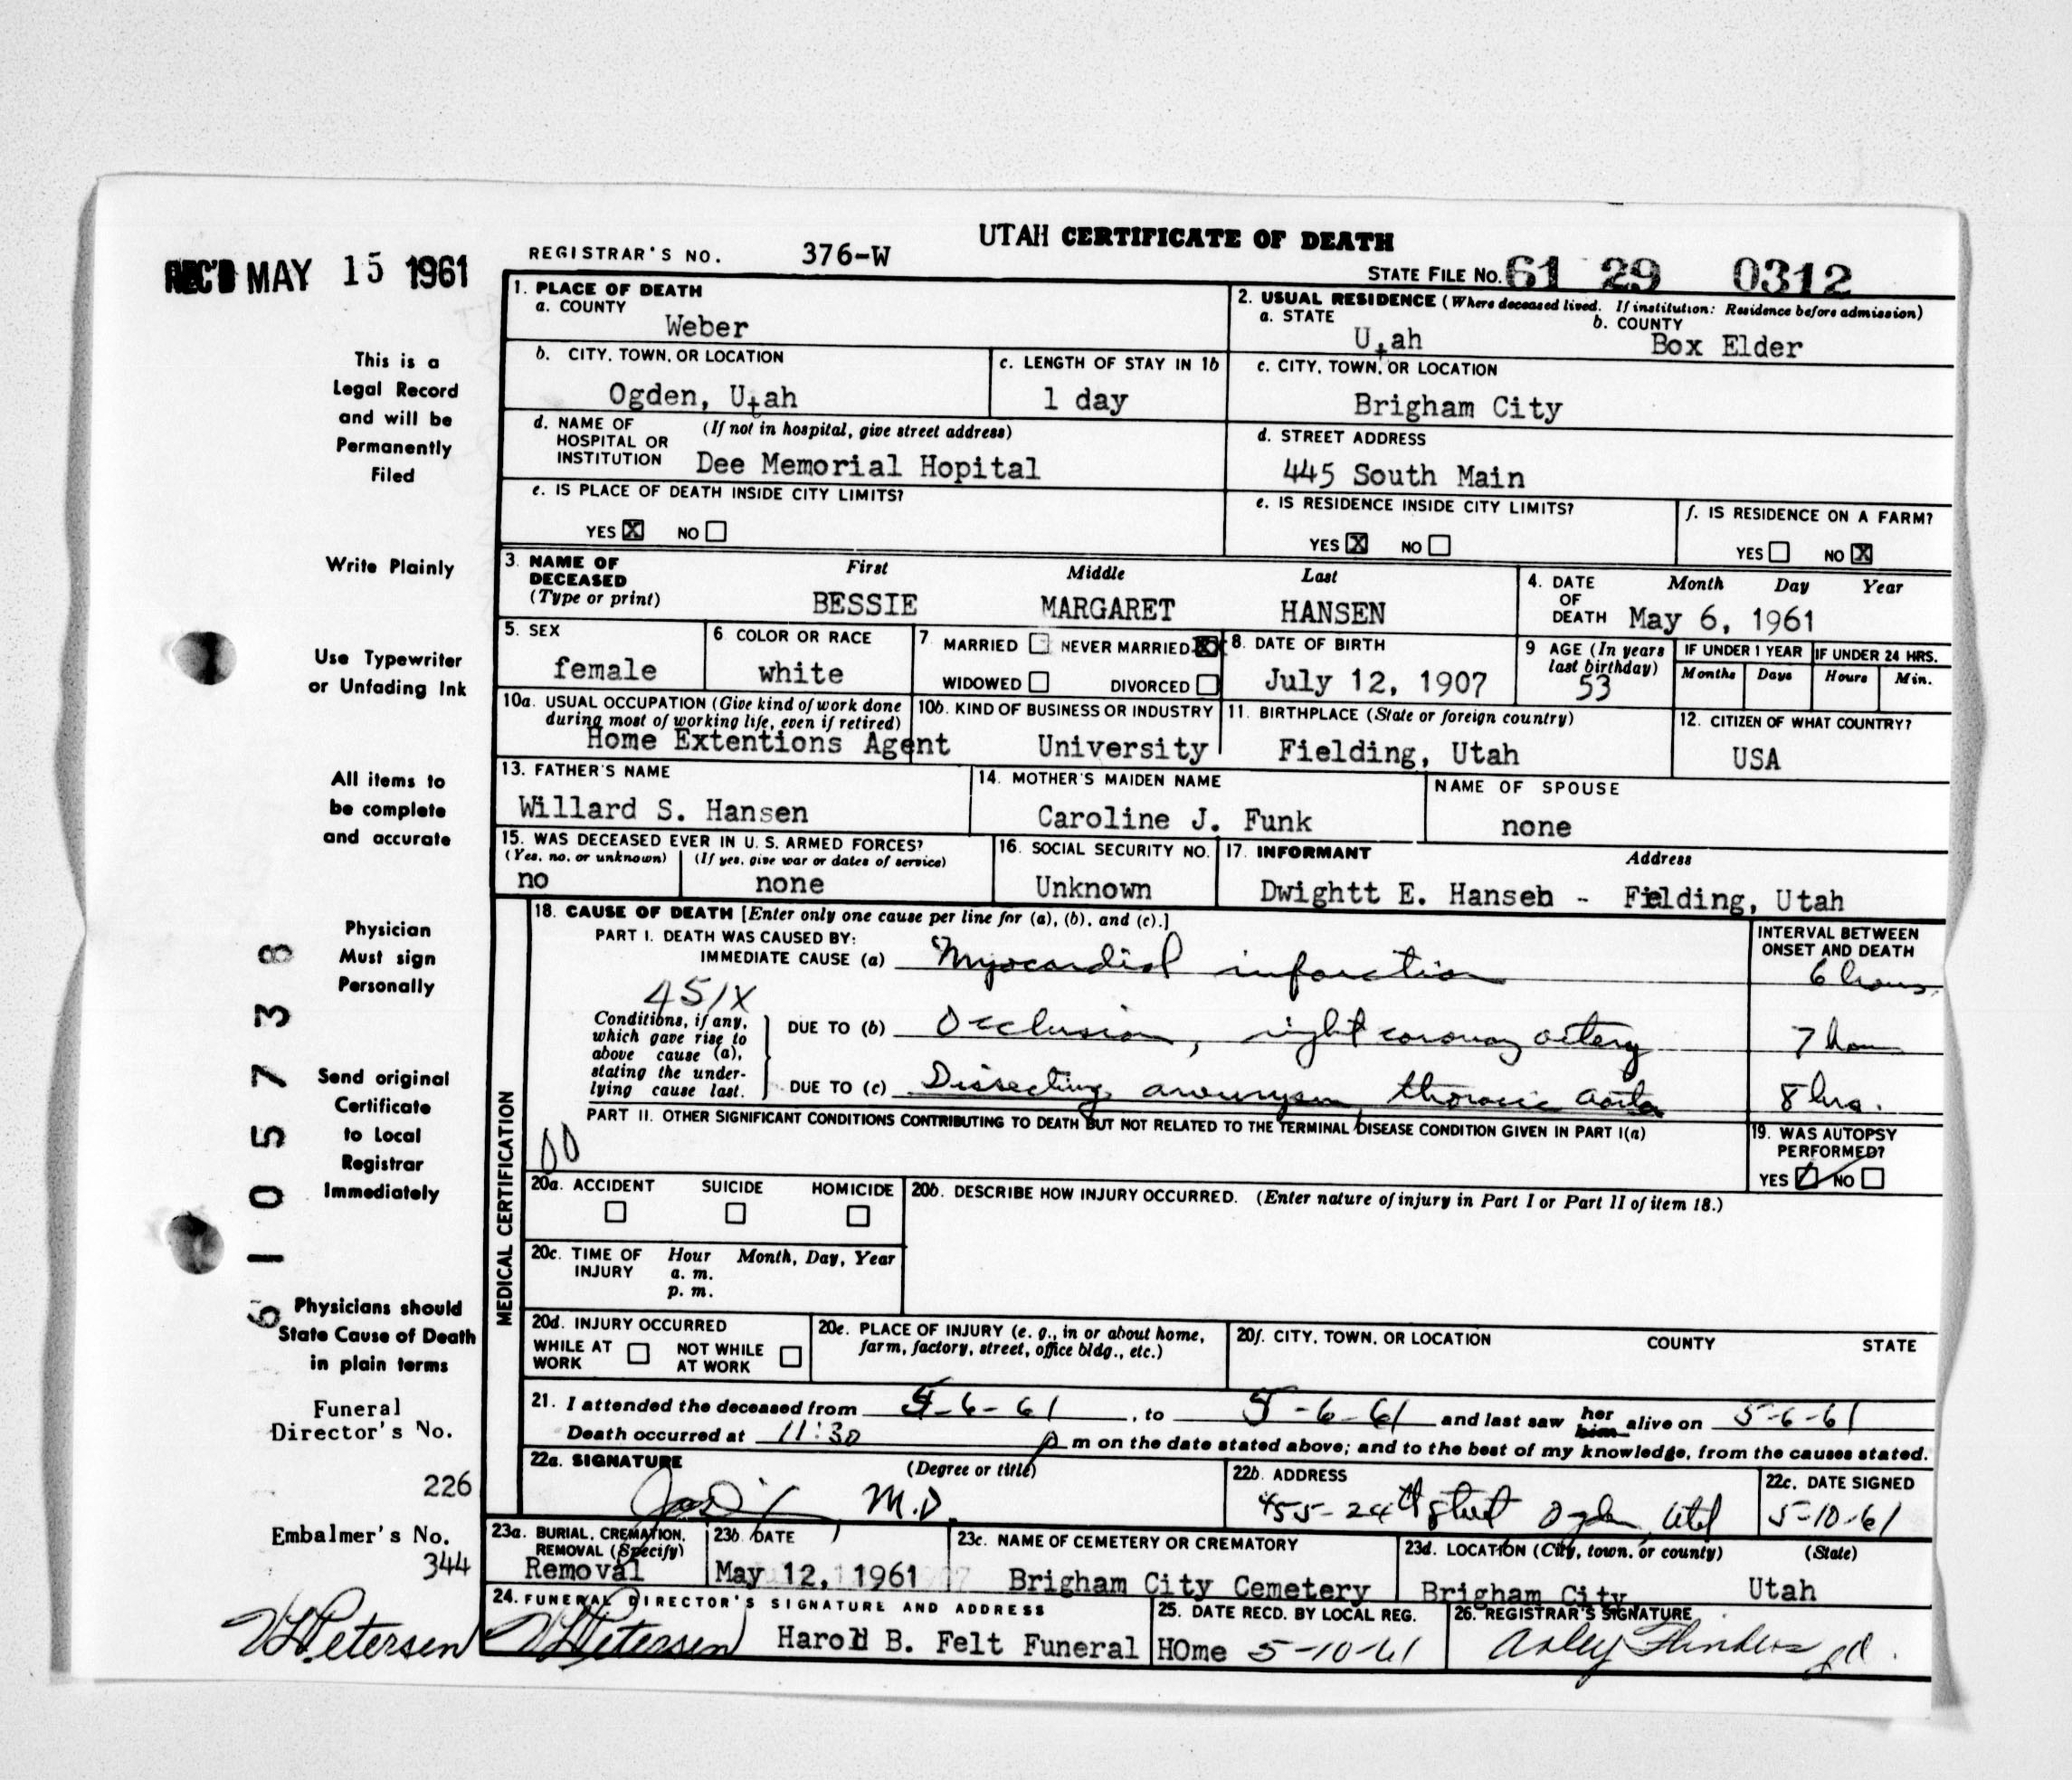 UTAH CERTIFICATE OF DEATH
REC'D MAY 15 1961
REGISTRAR'S NO. 376-W
STATE FILE NO. 61 29 0312
This is a
Legal Record
and will be
Permanently
Filed
Write Plainly
Use Typewriter
or Unfading Ink
All items to
be complete
and accurate
Physician
Must sign
Personally
Send original
Certificate
to Local
Registrar
Immediately
Physicians should
State Cause of Death
in plain terms
Funeral
Director's No.
226
Embalmer's No.
344
6105738
1. PLACE OF DEATH
a. COUNTY
Weber
2. USUAL RESIDENCE (Where deceased lived. If institution: Residence before admission)
a. STATE
Utah
b. COUNTY
Box Elder
b. CITY, TOWN, OR LOCATION
Ogden, Utah
c. LENGTH OF STAY IN 1b
1 day
c. CITY, TOWN, OR LOCATION
Brigham City
d. NAME OF (If not in hospital, give street address)
HOSPITAL OR
INSTITUTION Dee Memorial Hopital
d. STREET ADDRESS
445 South Main
e. IS PLACE OF DEATH INSIDE CITY LIMITS?
YES X NO
e. IS RESIDENCE INSIDE CITY LIMITS?
YES X NO
f. IS RESIDENCE ON A FARM?
YES NO X
3. NAME OF
DECEASED
(Type or print)
First Middle Last
BESSIE MARGARET HANSEN
4. DATE
OF
DEATH
Month Day Year
May 6, 1961
5. SEX
female
6 COLOR OR RACE
white
7. MARRIED NEVER MARRIED X
WIDOWED DIVORCED
8. DATE OF BIRTH
July 12, 1907
9 AGE (In years
last birthday)
53
IF UNDER 1 YEAR
Months Days
IF UNDER 24 HRS.
Hours Min.
10a. USUAL OCCUPATION (Give kind of work done
during most of working life, even if retired)
Home Extentions Agent
10b. KIND OF BUSINESS OR INDUSTRY
University
11. BIRTHPLACE (State or foreign country)
Fielding, Utah
12. CITIZEN OF WHAT COUNTRY?
USA
13. FATHER'S NAME
Willard S. Hansen
14. MOTHER'S MAIDEN NAME
Caroline J. Funk
NAME OF SPOUSE
none
15. WAS DECEASED EVER IN U. S. ARMED FORCES?
(Yes, no, or unknown) (If yes, give war or dates of service)
no none
16. SOCIAL SECURITY NO.
Unknown
17. INFORMANT Address
Dwightt E. Hanseb - Fielding, Utah
MEDICAL CERTIFICATION
18. CAUSE OF DEATH [Enter only one cause per line for (a), (b), and (c).]
PART I. DEATH WAS CAUSED BY:
IMMEDIATE CAUSE (a) Myocardial infarction
INTERVAL BETWEEN
ONSET AND DEATH
6 hours
451X
Conditions, if any,
which gave rise to
above cause (a),
stating the under-
lying cause last.
DUE TO (b) Occlusion, right coronary artery
7 hours
DUE TO (c) Dissecting aneurysm, thoracic aorta
8 hrs.
PART II. OTHER SIGNIFICANT CONDITIONS CONTRIBUTING TO DEATH BUT NOT RELATED TO THE TERMINAL DISEASE CONDITION GIVEN IN PART I(a)
00
19. WAS AUTOPSY
PERFORMED?
YES NO
20a. ACCIDENT SUICIDE HOMICIDE
20b. DESCRIBE HOW INJURY OCCURRED. (Enter nature of injury in Part I or Part II of item 18.)
20c. TIME OF
INJURY
Hour Month, Day, Year
a. m.
p. m.
20d. INJURY OCCURRED
WHILE AT
WORK
NOT WHILE
AT WORK
20e. PLACE OF INJURY (e. g., in or about home,
farm, factory, street, office bldg., etc.)
20f. CITY, TOWN, OR LOCATION COUNTY STATE
21. I attended the deceased from 5-6-61, to 5-6-61 and last saw her him alive on 5-6-61
Death occurred at 11:30 p m on the date stated above; and to the best of my knowledge, from the causes stated.
22a. SIGNATURE (Degree or title)
M.D.
22b. ADDRESS
455-24th Street Ogden, Utah
22c. DATE SIGNED
5-10-61
23a. BURIAL, CREMATION,
REMOVAL (Specify)
Removal
23b. DATE
May 12, 1961
23c. NAME OF CEMETERY OR CREMATORY
Brigham City Cemetery
23d. LOCATION (City, town, or county) (State)
Brigham City Utah
24. FUNERAL DIRECTOR'S SIGNATURE AND ADDRESS
Petersen Petersen Harold B. Felt Funeral HOme
25. DATE RECD. BY LOCAL REG.
5-10-61
26. REGISTRAR'S SIGNATURE
Flinders